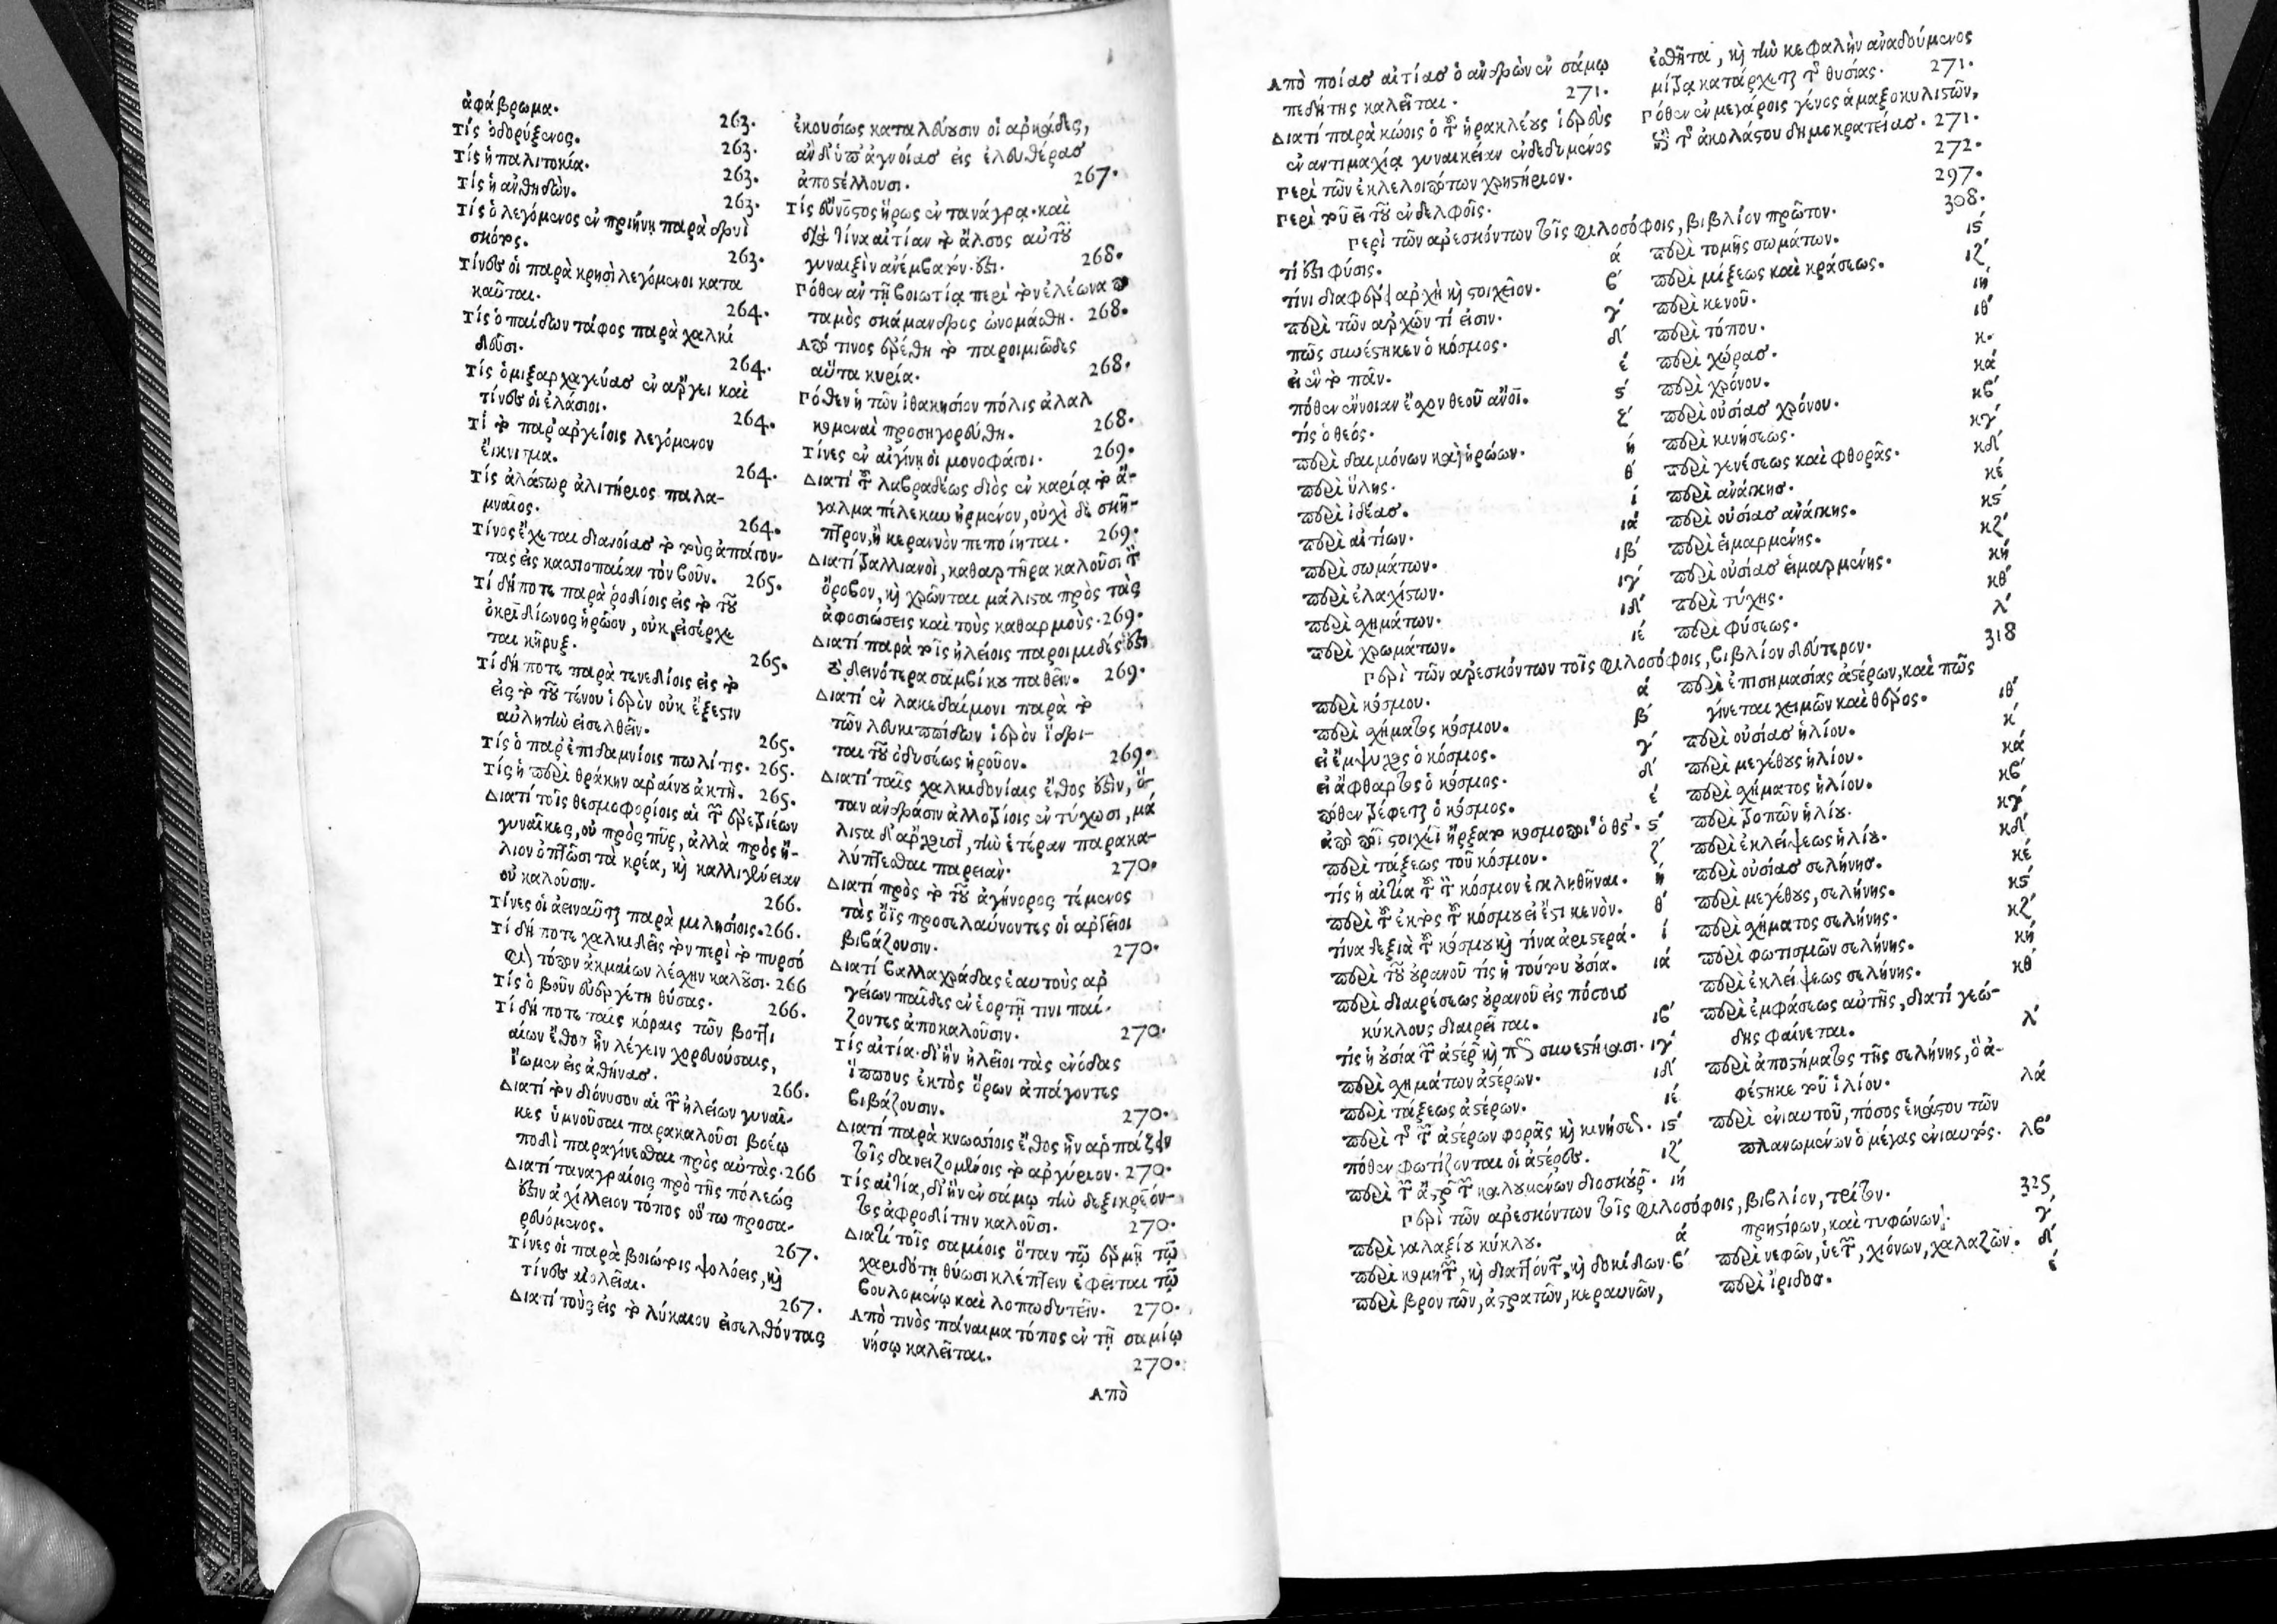 ἀφάβρωμα. 263.
Τίς ὁδορύξενος. 263.
Τίς ἡ παλιτοκία. 263.
Τίς ἡ ἀνθηδών. 263.
Τίς ὁ λεγόμενος ἐν πριήνῃ παρὰ δρυὶ
σκότος. 263.
Τίνες οἱ παρὰ κρησὶ λεγόμενοι κατα
καῦται. 264.
Τίς ὁ παίδων τάφος παρὰ χαλκι
δεῦσι. 264.
Τίς ὁ μιξαρχαγεύας ἐν ἄργει καὶ
τίνες οἱ ἐλάσιοι. 264.
Τί τὸ παρ' ἀργείοις λεγόμενον
ἔγκνισμα. 264.
Τίς ἀλάστωρ ἀλιτήριος παλα-
μναῖος. 264.
Τίνος ἔχεται διανοίας τὸ τοὺς ἀπάγον-
τας εἰς τὸν βοῦν. 265.
Τί δή ποτε παρὰ ῥοδίοις εἰς τὸ τοῦ
ὀκριδίωνος ἡρῶον, οὐκ εἰσέρχε
ται κῆρυξ. 265.
Τί δή ποτε παρὰ τενεδίοις εἰς τὸ
εἰς τὸ τοῦ τένου ἱερὸν οὐκ ἔξεστιν
αὐλητὴν εἰσελθεῖν. 265.
Τίς ὁ παρ' ἐπιδαμνίοις πωλίτις. 265.
Τίς ἡ περὶ θράκην ἀραίνου ἀκτή. 265.
Διατί τοῖς θεσμοφορίοις αἱ τῶν ἐρετριέων
γυναῖκες, οὐ πρὸς πῦρ, ἀλλὰ πρὸς ἥ-
λιον ὀπτῶσι τὰ κρέα, καὶ καλλιγένειαν
οὐ καλοῦσιν. 266.
Τίνες οἱ ἀειναῦται παρὰ μιλησίοις. 266.
Τί δή ποτε χαλκιδεῖς τὸν περὶ τὸ πυρσό
φιον τόπον ἀκμαίων λέσχην καλοῦσι. 266
Τίς ὁ βοῦν εὐεργέτῃ θύσας. 266.
Τί δή ποτε ταῖς κόραις τῶν βοττι
αίων ἔθος ἦν λέγειν χορευούσαις,
ἴωμεν εἰς ἀθήνας. 266.
Διατί τὸν διόνυσον αἱ τῶν ἠλείων γυναῖ-
κες ὑμνοῦσαι παρακαλοῦσι βοέῳ
ποδὶ παραγίνεσθαι πρὸς αὐτάς. 266
Διατί ταναγραίοις πρὸ τῆς πόλεώς
ἐστιν ἀχίλλειον τόπος οὕτω προσα-
ρευόμενος. 267.
Τίνες οἱ παρὰ βοιώτοις ψολόεις, καὶ
τίνες αἰολεῖαι. 267.
Διατί τοὺς εἰς τὸ λύκαιον εἰσελθόντας
ἑκουσίως καταλεύουσιν οἱ ἀρκάδες,
ἂν δ' ὑπ' ἀγνοίας εἰς ἐλευθέρας
ἀποστέλλουσι. 267.
Τίς εὔνοστος ἥρως ἐν τανάγρᾳ. καὶ
διὰ τίνα αἰτίαν τὸ ἄλσος αὐτοῦ
γυναιξὶν ἀνέμβατόν ἐστι. 268.
Πόθεν ἂν τῇ βοιωτίᾳ περὶ τὸν ἐλέωνα πο
ταμὸς σκάμανδρος ὠνομάσθη. 268.
Ἀπό τινος ἐρέθη τὸ παροιμιῶδες
αὕτα κυρία. 268.
Πόθεν ἡ τῶν ἰθακησίον πόλις ἀλαλ
κομεναὶ προσηγορεύθη. 268.
Τίνες ἐν αἰγίνῃ οἱ μονοφάγοι. 269.
Διατί τοῦ λαβραδέως διὸς ἐν καρίᾳ τὸ ἄ-
γαλμα πέλεκυν ἠρμένον, οὐχὶ δὲ σκῆ-
πτρον, ἢ κεραυνὸν πεποίηται. 269.
Διατί τραλλιανοὶ, καθαρτῆρα καλοῦσι τὸν
ὄροβον, καὶ χρῶνται μάλιστα πρὸς τὰς
ἀφοσιώσεις καὶ τοὺς καθαρμούς. 269.
Διατί παρὰ τοῖς ἠλείοις παροιμιῶδές ἐστι
οὐ δεινότερα σάμβικου παθεῖν. 269.
Διατί ἐν λακεδαίμονι παρὰ τὸ
τῶν λευκιππίδων ἱερὸν ἵδρυ-
ται τοῦ ὀδυσέως ἡροῦον. 269.
Διατί ταῖς χαλκιδονίαις ἔθος ἐστὶν, ὅ-
ταν ἀνδράσιν ἀλλοτρίοις ἐν τύχωσι, μά
λιστα δ' ἄρχουσι, τὴν ἑτέραν παρακα-
λύπτεσθαι παρειάν. 270.
Διατί πρὸς τὸ τοῦ ἀγήνορος τέμενος
τὰς ὄϊς προσελαύνοντες οἱ ἀργεῖοι
βιβάζουσιν. 270.
Διατί βαλλαχράδας ἑαυτοὺς ἀρ
γείων παῖδες ἐν ἑορτῇ τινι παί-
ζοντες ἀποκαλοῦσιν. 270.
Τίς αἰτία. δι' ἣν ἠλεῖοι τὰς ἐνόδας
ἵππους ἐκτὸς ὅρων ἀπάγοντες
βιβάζουσιν. 270.
Διατί παρὰ κνωσίοις ἔθος ἦν ἁρπάζειν
τοῖς δανειζομένοις τὸ ἀργύριον. 270.
Τίς αἰτία, δι' ἣν ἐν σάμῳ τὴν δεξικρέον-
τος ἀφροδίτην καλοῦσι. 270.
Διατί τοῖς σαμίοις ὅταν τῷ ἑρμῇ τῷ
χαριδότῃ θύωσι κλέπτειν ἐφεῖται τῷ
βουλομένῳ καὶ λοπωδυτεῖν. 270.
Ἀπὸ τινὸς πάναιμα τόπος ἐν τῇ σαμίῳ
νήσῳ καλεῖται. 270.
Ἀπὸ
Ἀπὸ ποίας αἰτίας ὁ ἀνδρῶν ἐν σάμῳ
πεδήτης καλεῖται. 271.
Διατί παρὰ κώοις ὁ τοῦ ἡρακλέους ἱερεὺς
ἐν αντιμαχίᾳ γυναικείαν ἐνδεδυμένος
ἐσθῆτα, καὶ τὴν κεφαλὴν ἀναδούμενος
μίτρᾳ κατάρχεται τῆς θυσίας. 271.
Πόθεν ἐν μεγάροις γένος ἁμαξοκυλιστῶν,
ἐπὶ τῆς ἀκολάστου δημοκρατείας. 271.
Περὶ τῶν ἐκλελοιπότων χρηστήριον. 272.
Περὶ τοῦ εἶ τοῦ ἐν δελφοῖς. 297.
Περὶ τῶν ἀρεσκόντων τοῖς φιλοσόφοις, βιβλίον πρῶτον. 308.
τί ἐστι φύσις. ά
τίνι διαφέρει ἀρχὴ καὶ στοιχεῖον. β'
περὶ τῶν ἀρχῶν τί εἰσιν. γ'
πῶς συνέστηκεν ὁ κόσμος. δ'
εἰ ἓν τὸ πᾶν. έ
πόθεν ἔννοιαν ἔχον θεοῦ ἄνοι. ς'
τίς ὁ θεός. ζ'
περὶ δαιμόνων καὶ ἡρώων. ή
περὶ ὕλης. θ'
περὶ ἰδέας. ί
περὶ αἰτίων. ιά
περὶ σωμάτων. ιβ'
περὶ ἐλαχίστων. ιγ'
περὶ σχημάτων. ιδ'
περὶ χρωμάτων. ιέ
περὶ τομῆς σωμάτων. ις'
περὶ μίξεως καὶ κράσεως. ιζ'
περὶ κενοῦ. ιή
περὶ τόπου. ιθ'
περὶ χώρας. κ.
περὶ χρόνου. κά
περὶ οὐσίας χρόνου. κβ'
περὶ κινήσεως. κγ'
περὶ γενέσεως καὶ φθορᾶς. κδ'
περὶ ἀνάγκης. κέ
περὶ οὐσίας ἀνάγκης. κς'
περὶ εἱμαρμένης. κζ'
περὶ οὐσίας εἱμαρμένης. κή
περὶ τύχης. κθ'
περὶ φύσεως. λ'
Περὶ τῶν ἀρεσκόντων τοῖς φιλοσόφοις, βιβλίον δεύτερον. 318
περὶ κόσμου. ά
περὶ σχήματος κόσμου. β'
εἰ ἔμψυχος ὁ κόσμος. γ'
εἰ ἄφθαρτος ὁ κόσμος. δ'
πόθεν τρέφεται ὁ κόσμος. έ
ἀπὸ ποίου στοιχείου ἤρξατο κοσμοποιεῖν ὁ θεός. ς'
περὶ τάξεως τοῦ κόσμου. ζ'
τίς ἡ αἰτία τοῦ τὸν κόσμον ἐγκληθῆναι. ή
περὶ τοῦ ἐκτὸς τοῦ κόσμου εἰ ἔστι κενὸν. θ'
τίνα δεξιὰ τοῦ κόσμου καὶ τίνα ἀριστερά. ί
περὶ τοῦ οὐρανοῦ τίς ἡ τούτου οὐσία. ιά
περὶ διαιρέσεως οὐρανοῦ εἰς πόσους
κύκλους διαιρεῖται. ιβ'
τίς ἡ οὐσία τῶν ἀστέρων καὶ πῶς συνεστήκασι. ιγ'
περὶ σχημάτων ἀστέρων. ιδ'
περὶ τάξεως ἀστέρων. ιέ
περὶ τῆς τῶν ἀστέρων φορᾶς καὶ κινήσεως. ις'
πόθεν φωτίζονται οἱ ἀστέρες. ιζ'
περὶ τῶν ἀστέρων τῶν καλουμένων διοσκούρων. ιή
περὶ ἐπισημασίας ἀστέρων, καὶ πῶς
γίνεται χειμῶν καὶ θέρος. ιθ'
περὶ οὐσίας ἡλίου. κ'
περὶ μεγέθους ἡλίου. κά
περὶ σχήματος ἡλίου. κβ'
περὶ τροπῶν ἡλίου. κγ'
περὶ ἐκλείψεως ἡλίου. κδ'
περὶ οὐσίας σελήνης. κέ
περὶ μεγέθους, σελήνης. κς'
περὶ σχήματος σελήνης. κζ'
περὶ φωτισμῶν σελήνης. κή
περὶ ἐκλείψεως σελήνης. κθ'
περὶ ἐμφάσεως αὐτῆς, διατί γεώ-
δης φαίνεται. λ'
περὶ ἀποστήματος τῆς σελήνης, ὃ ἀ-
φέστηκε τοῦ ἡλίου. λά
περὶ ἐνιαυτοῦ, πόσος ἑκάστου τῶν
πλανωμένων ὁ μέγας ἐνιαυτός. λβ'
Περὶ τῶν ἀρεσκόντων τοῖς φιλοσόφοις, βιβλίον, τρίτον. 325
περὶ γαλαξίου κύκλου. ά
περὶ κομητῶν, καὶ διαττόντων, καὶ δοκίδων. β'
περὶ βροντῶν, ἀστραπῶν, κεραυνῶν,
πρηστήρων, καὶ τυφώνων. γ'
περὶ νεφῶν, ὑετῶν, χιόνων, χαλαζῶν. δ'
περὶ ἴριδος. έ